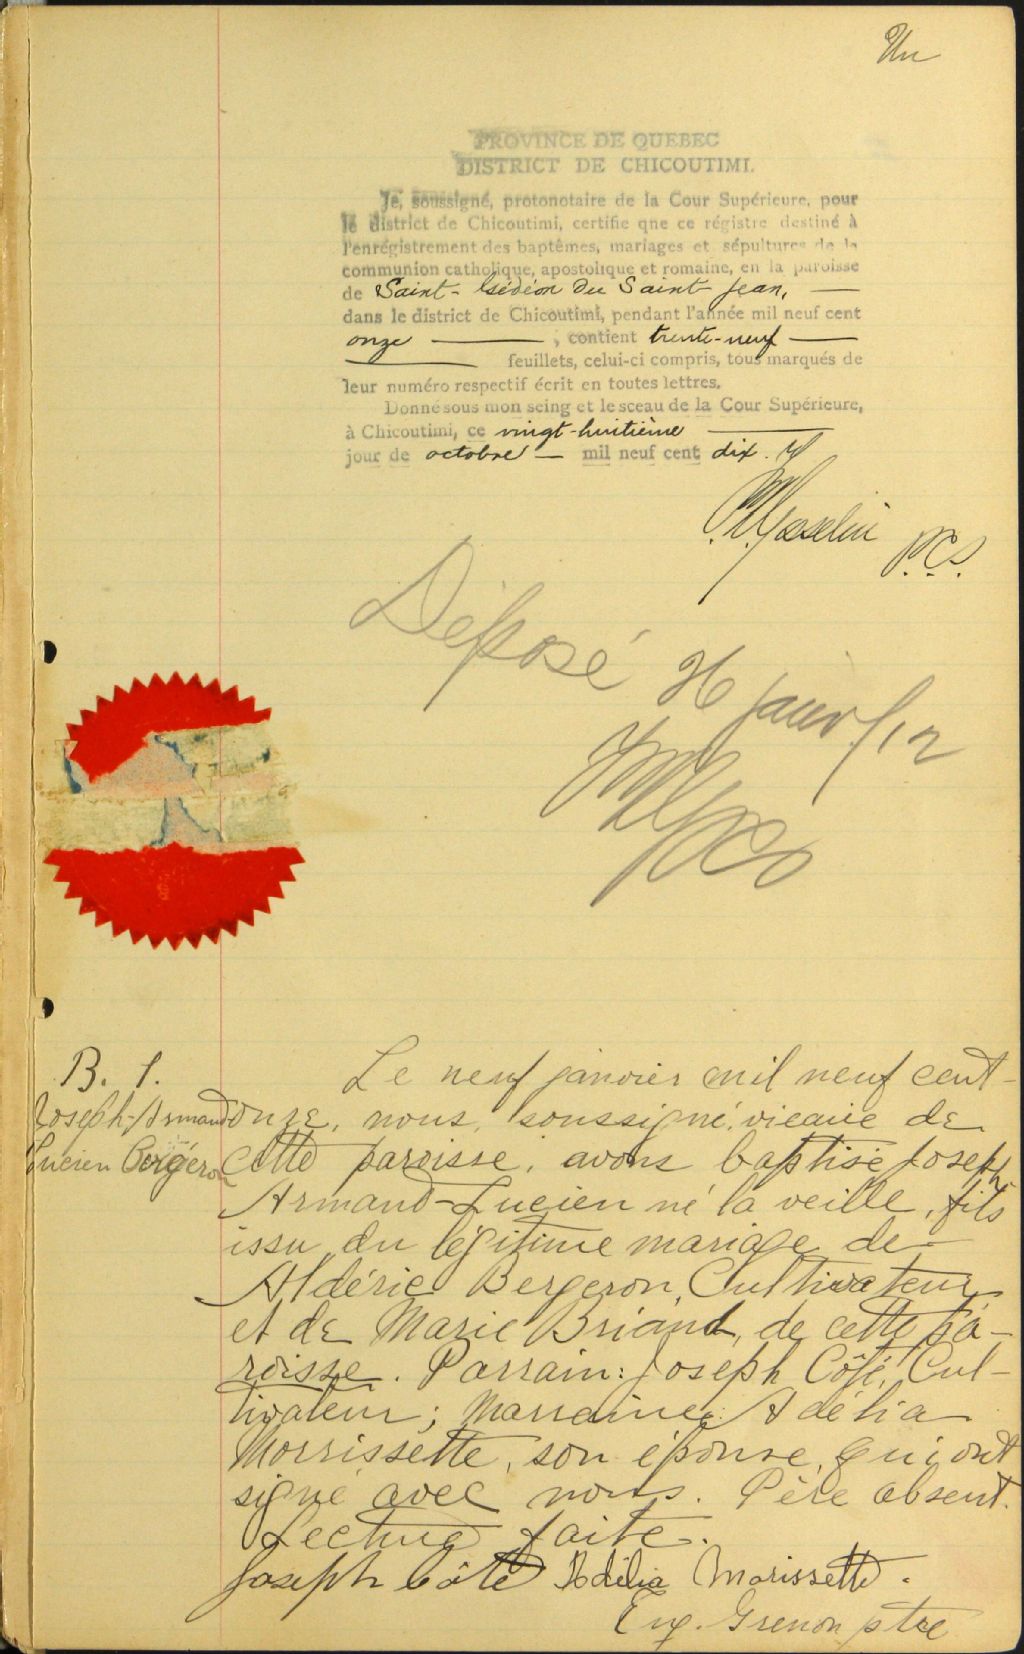 Un
PROVINCE DE QUEBEC
DISTRICT DE CHICOUTIMI.
Je, soussigné, protonotaire de la Cour Supérieure, pour
le district de Chicoutimi, certifie qne ce régistre destiné à
l'enrégistrement des baptêmes, mariages et sépultures de la
communion catholique, apostolique et romaine, en la paroisse
de Saint-Gédéon du Saint Jean,
dans le district de Chicoutimi, pendant l'année mil neuf cent
onze ; contient trente-neuf
feuillets, celui-ci compris, tous marqués de
leur numéro respectif écrit en toutes lettres.
Donné sous mon seing et le sceau de la Cour Supérieure,
à Chicoutimi, ce vingt-huitième
jour de octobre mil neuf cent dix.
Gosselin P.C.S.
Déposé 26 janv/12
B. 1.
Joseph-Armand
Lucien Bergeron
Le neuf janvier mil neuf cent-
onze, nous, soussigné, vicaire de
cette paroisse, avons baptisé Joseph
Armand-Lucien né la veille, fils
issu du légitime mariage de
Aldéric Bergeron, Cultivateur
et de Marie Briand, de cette pa-
roisse. Parrain: Joseph Côté, Cul-
tivateur; Marraine: Adélia
Morrissette, son épouse, qui ont
signé avec nous. Père absent.
Lecture faite.
Joseph Côté Adélia Morissette.
Eug. Grenon ptre